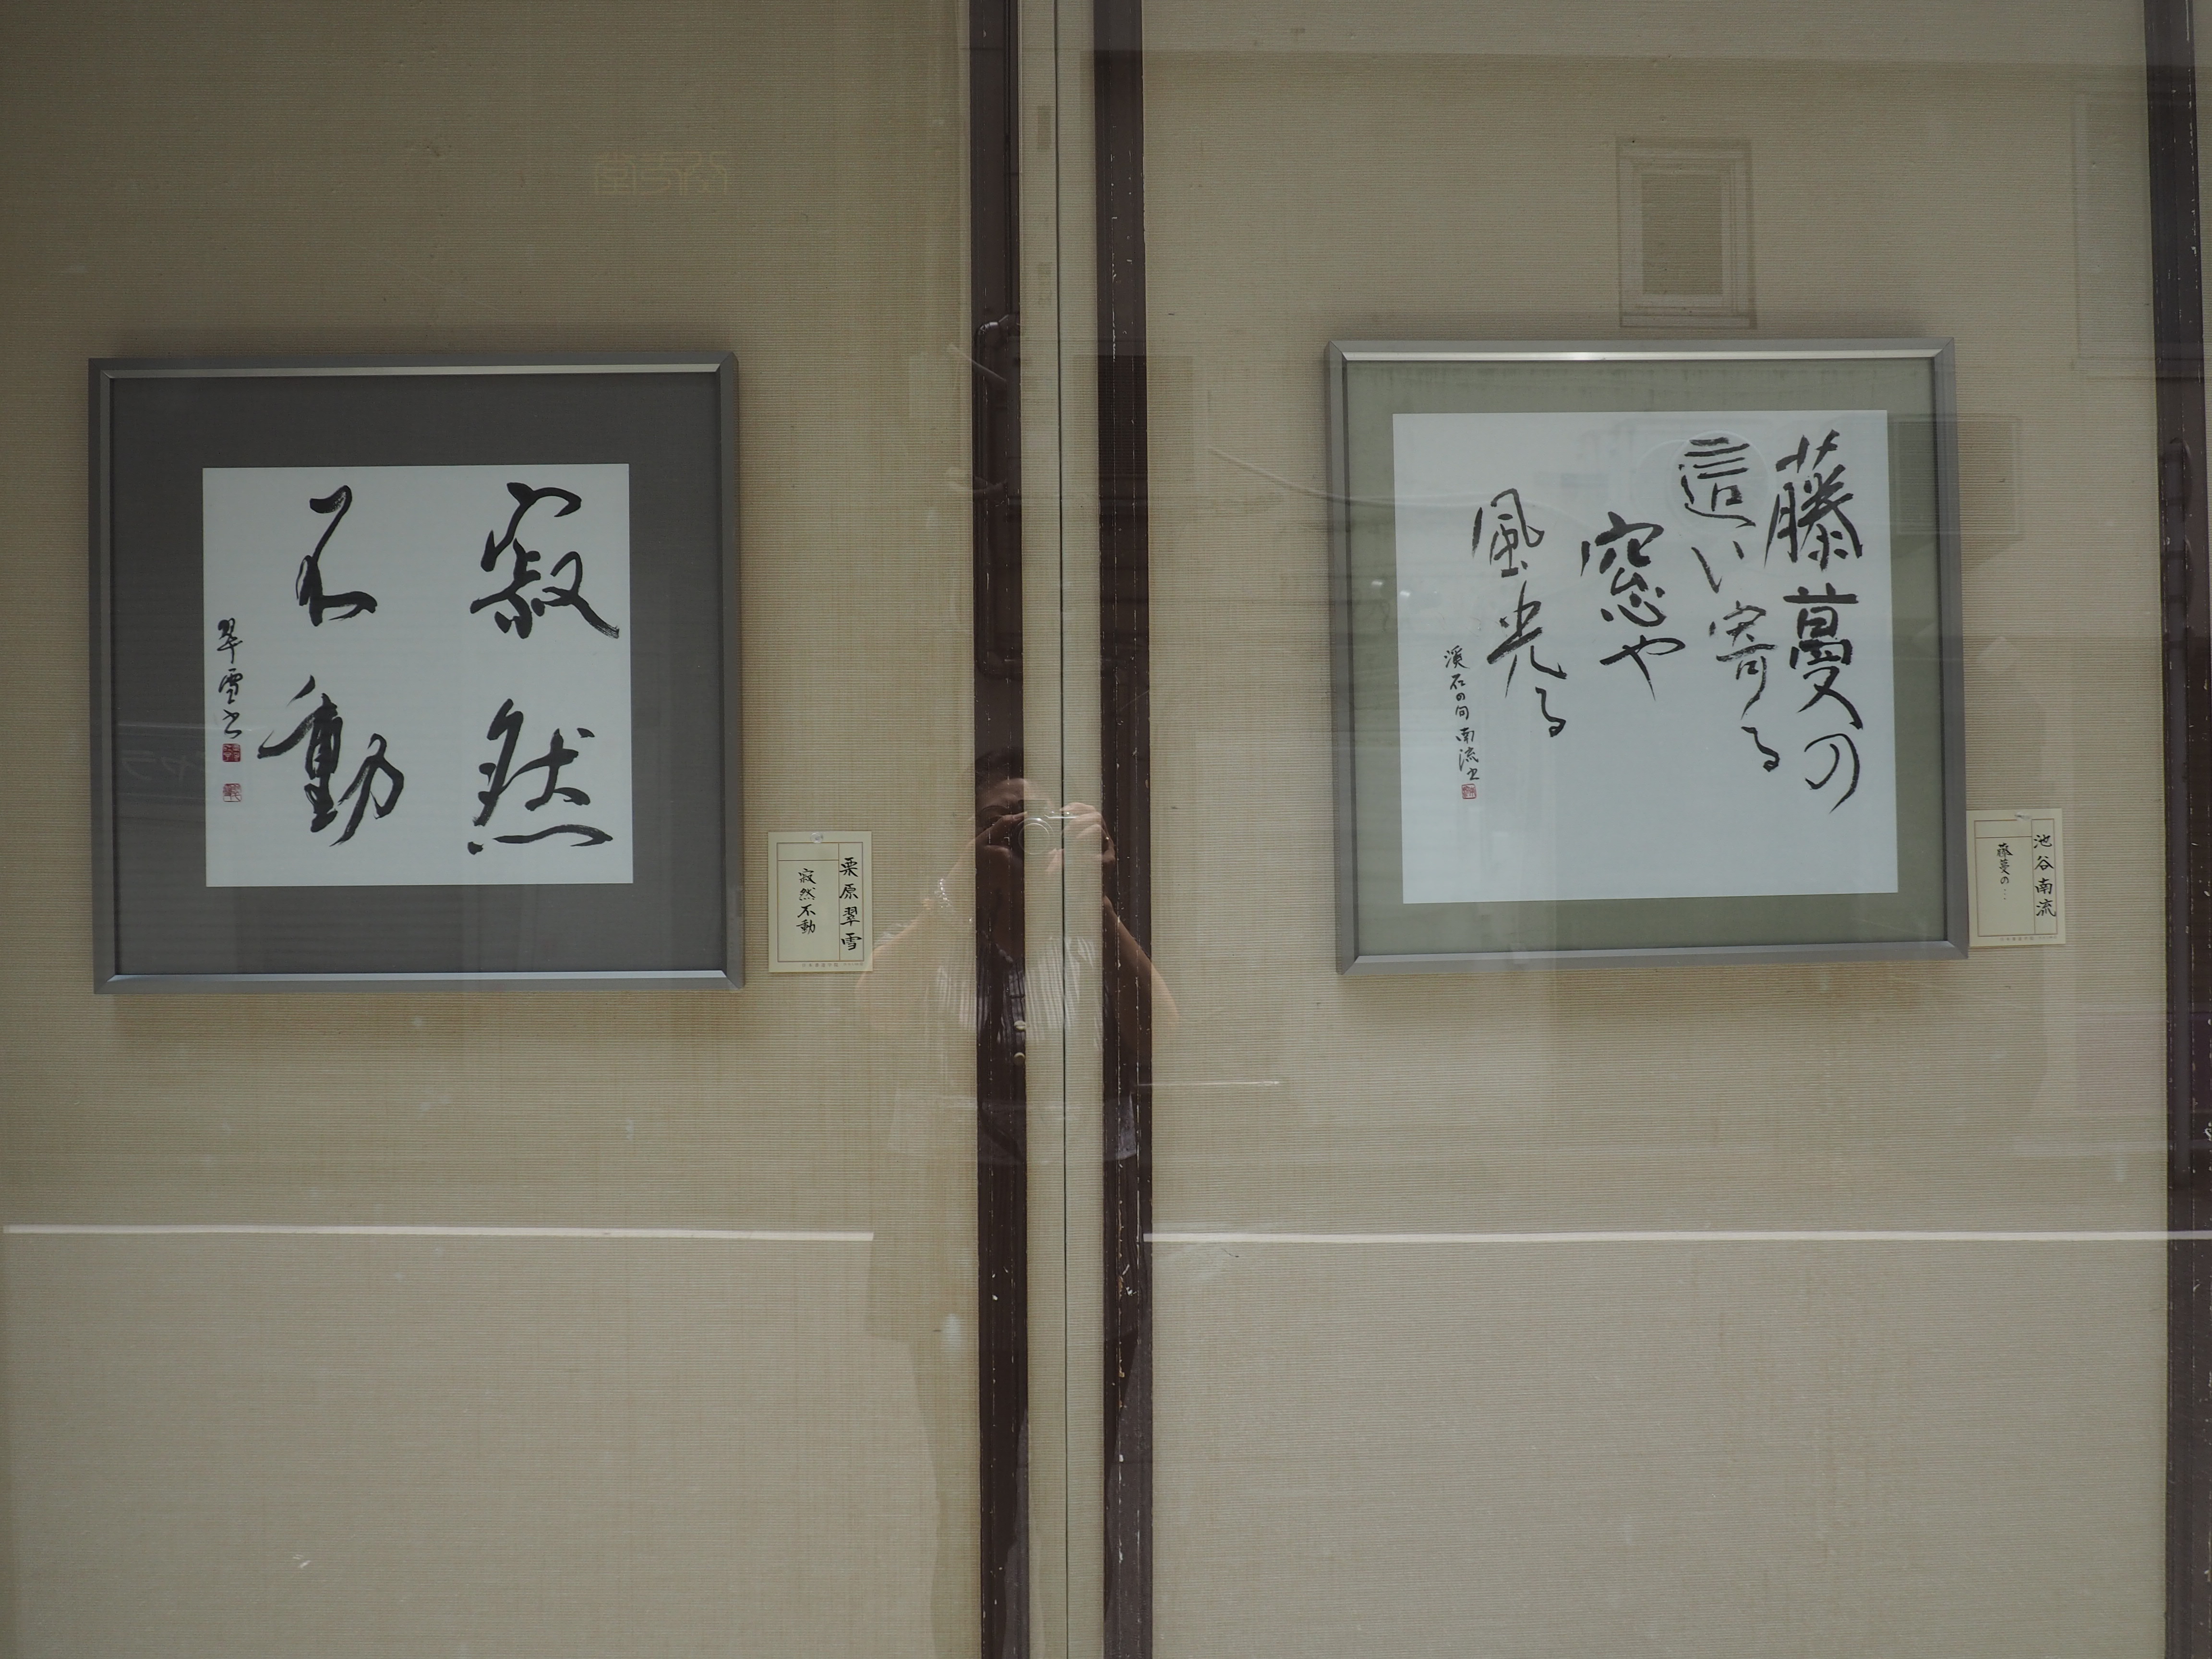 寂然
不動
翠雪書
栗原翠雪
寂然不動
藤蔓の
這い寄る
窓や
風光る
溪石の句 南流書
池谷南流
藤蔓の…